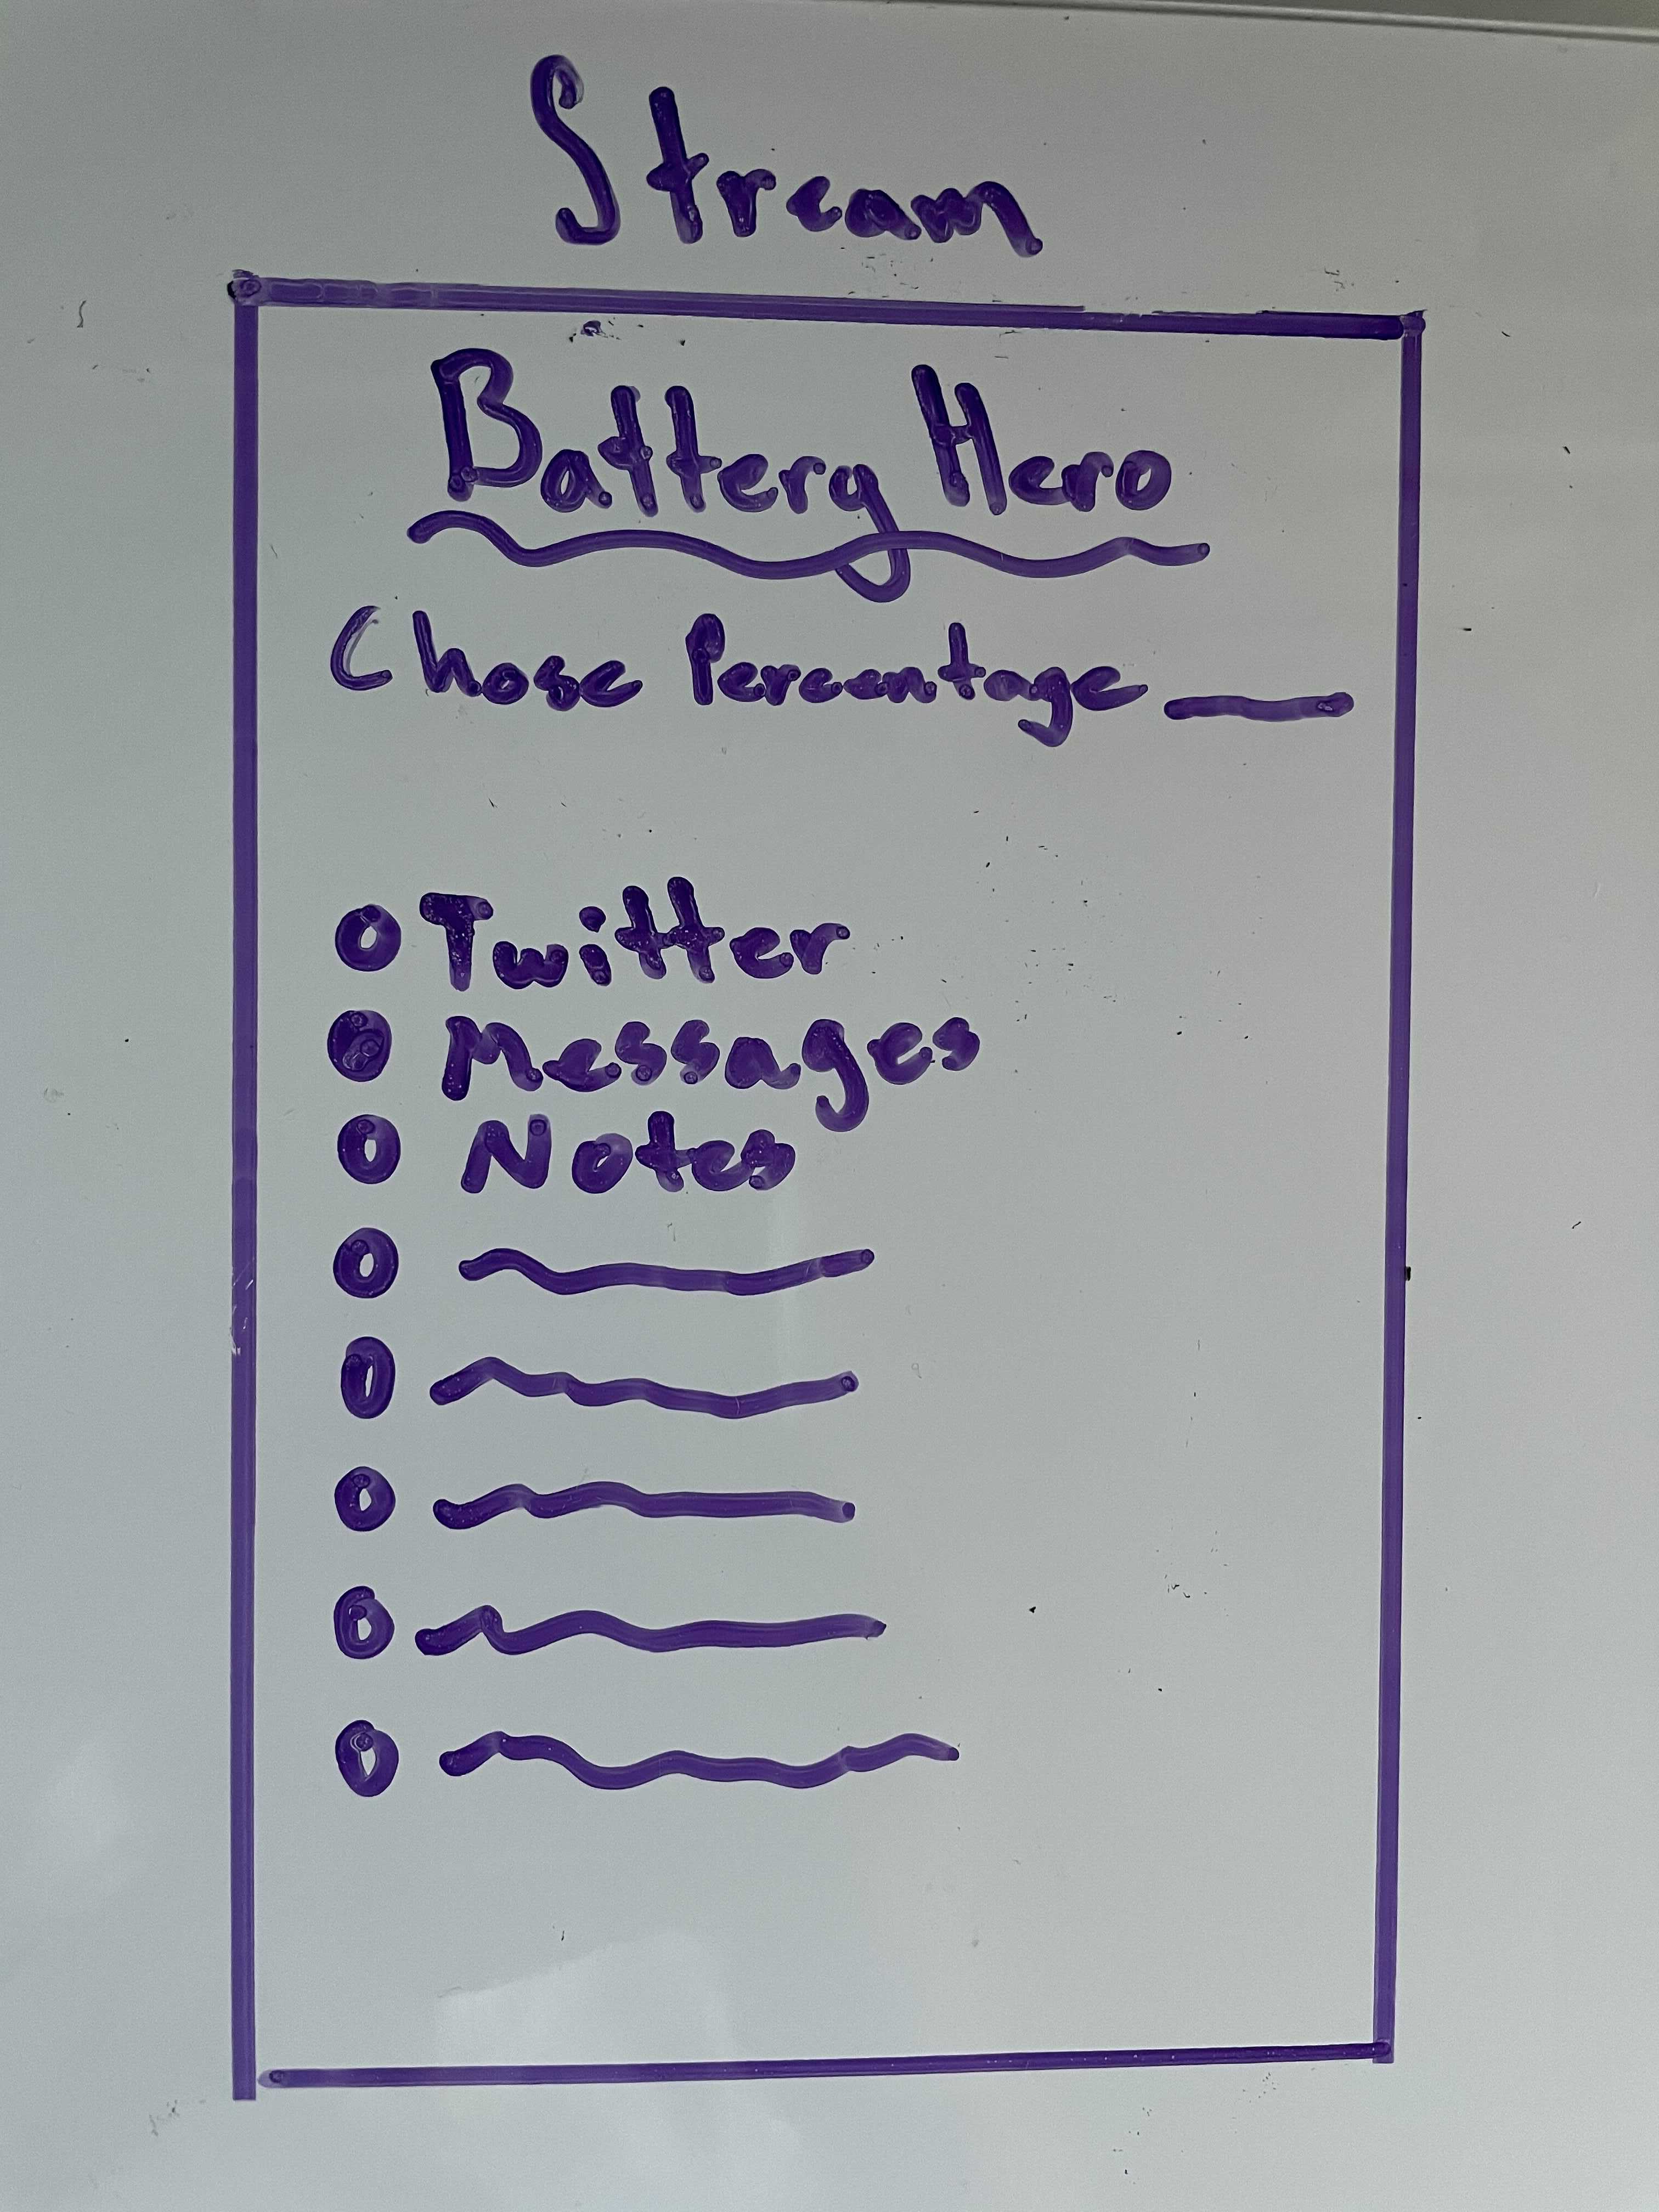 Stream
Battery Hero
Chose Percentage
Twitter
Messages
Notes